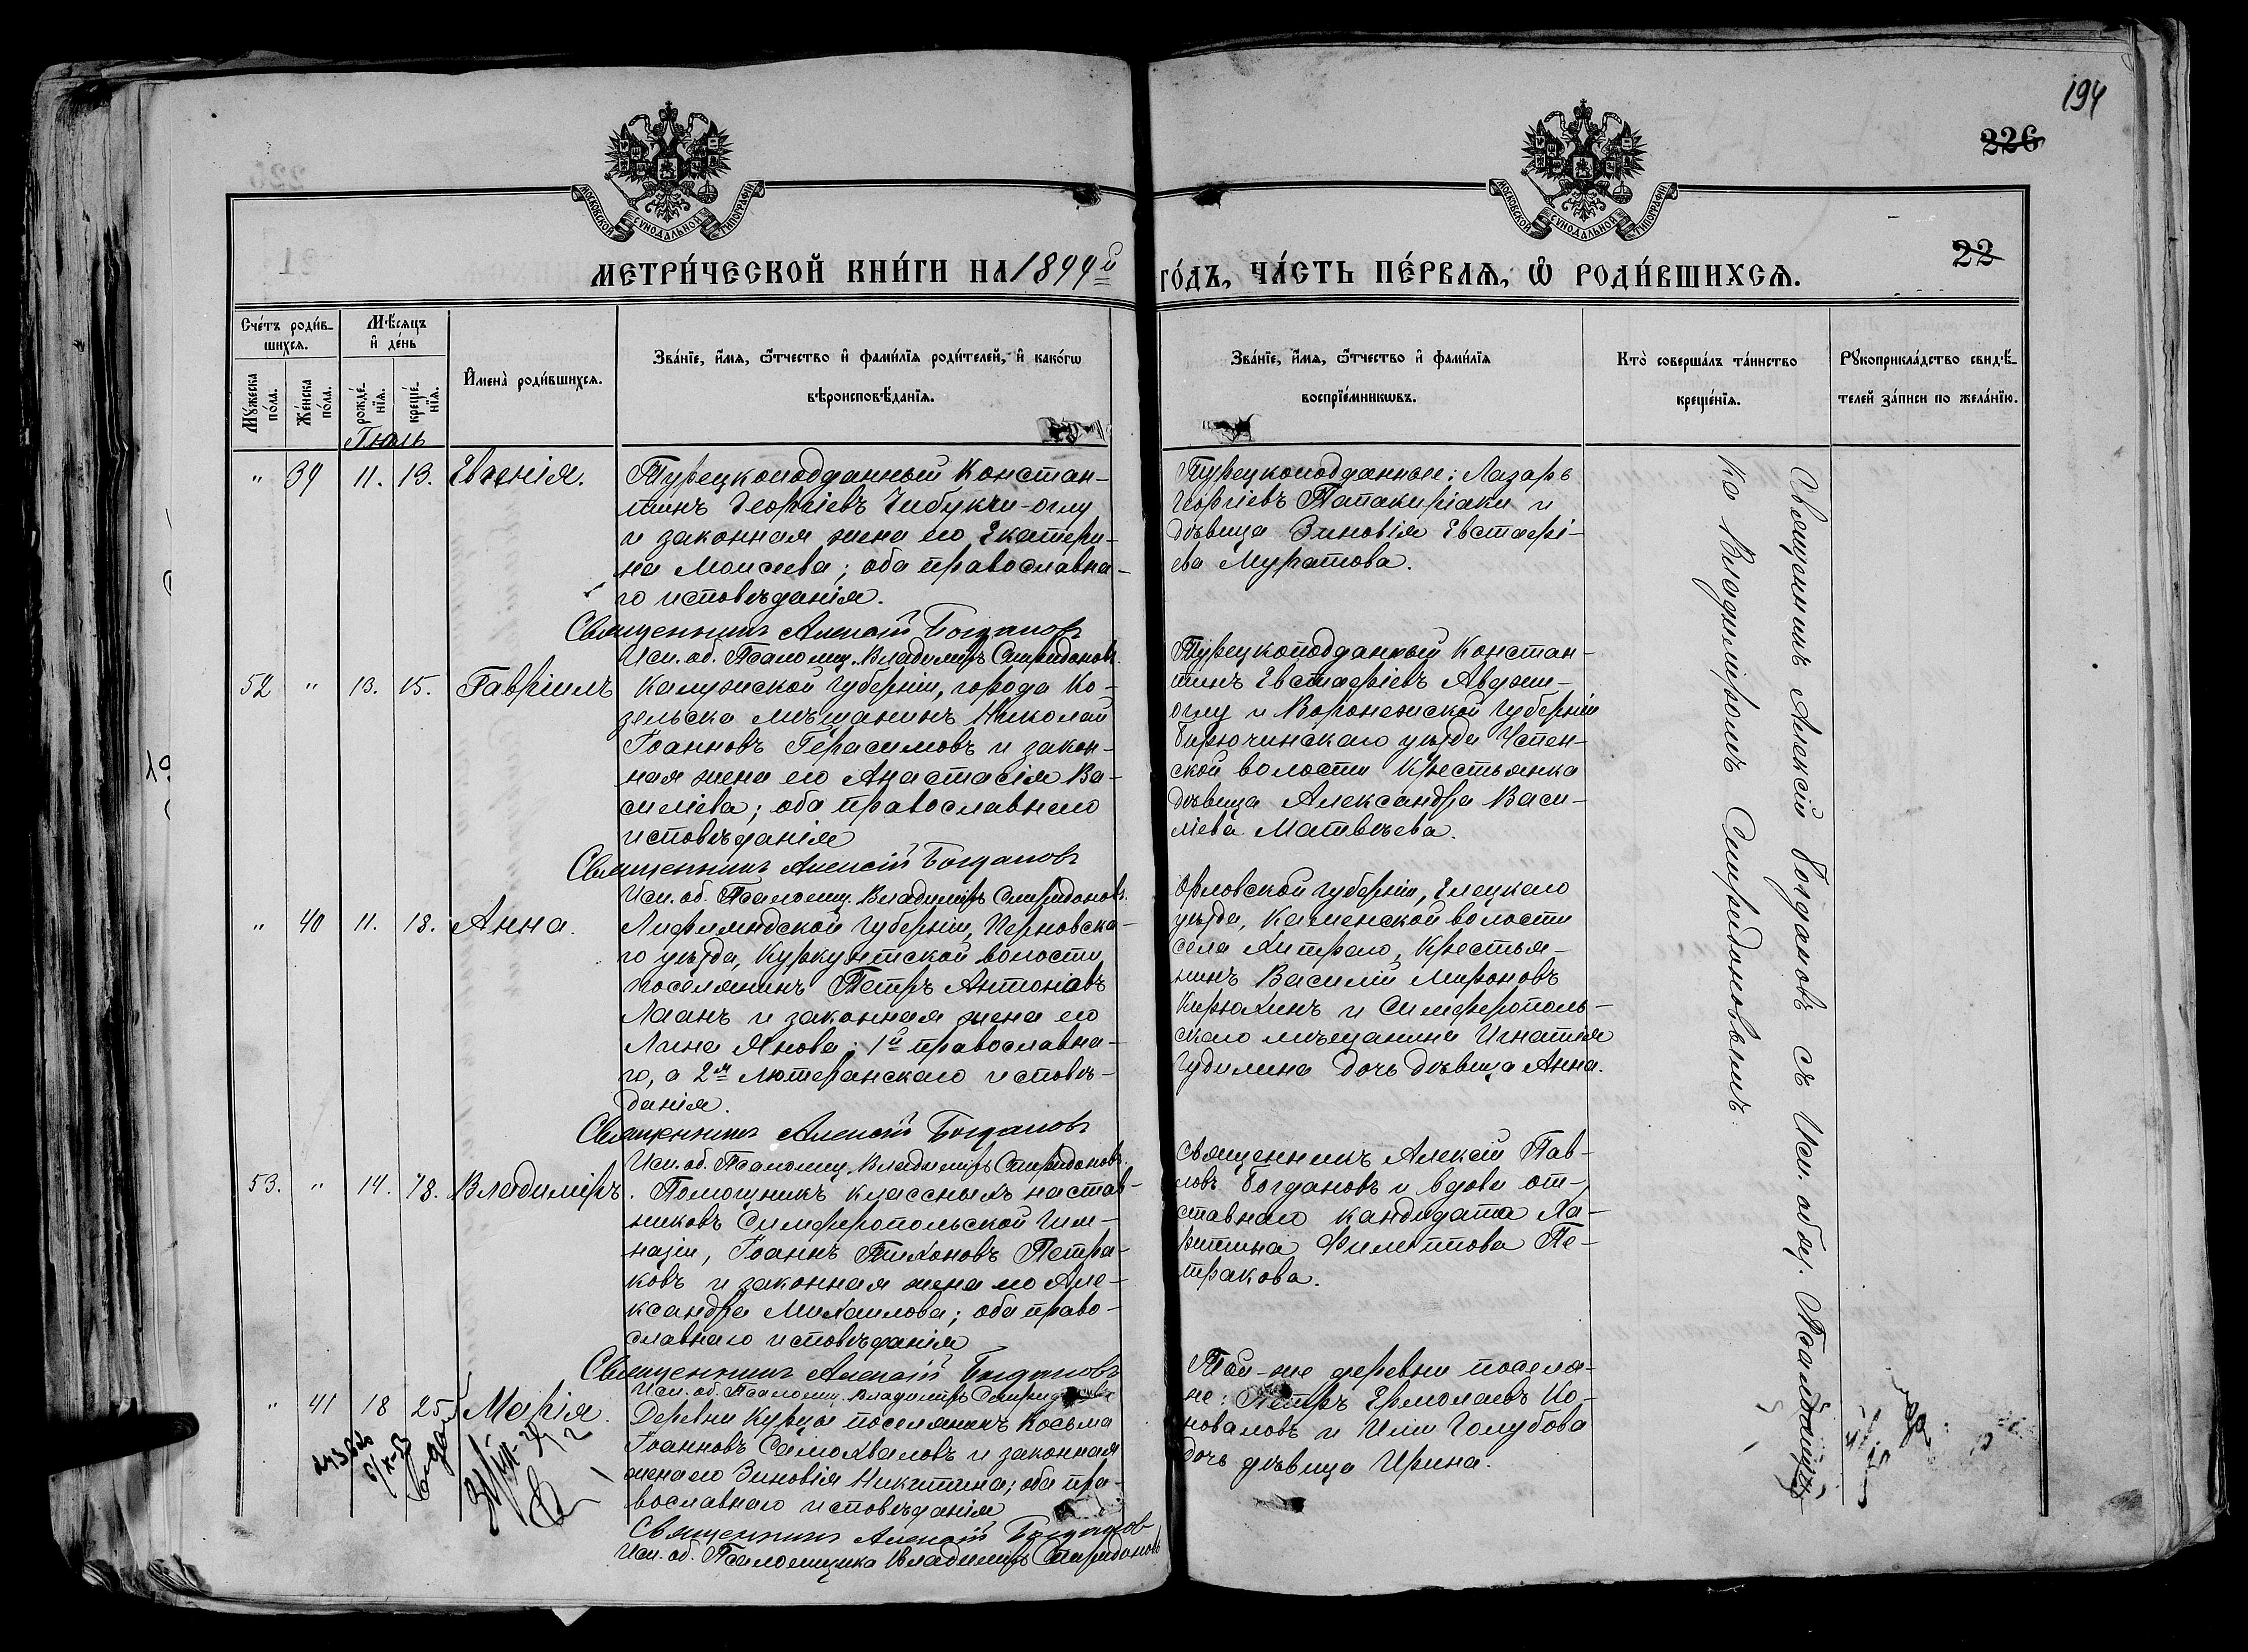 194
226
22
МОСКОВСКОЙ СѴНОДАЛЬНОЙ ТИПОГРАФІИ
МОСКОВСКОЙ СѴНОДАЛЬНОЙ ТИПОГРАФІИ
МЕТРИ́ЧЕСКОЙ КНИ́ГИ НА 1899й ГО́ДЪ, ЧА́СТЬ ПЕ́РВАѦ, Ѡ҆ РОДИ́ВШИХСѦ.
Сче́тъ роди́вшихсѧ.
Мꙋжеска по́ла.
Же́нска по́ла.
Мѣ́сѧцъ и҆ де́нь
рожде́нїѧ.
креще́нїѧ.
И҆мена̀ роди́вшихсѧ.
Зва́нїе, и҆́мѧ, ѻ҆́тчество и҆ фами́лїѧ роди́телей, и҆ како́гѡ
вѣроисповѣ́данїѧ.
Зва́нїе, и҆́мѧ, ѻ҆́тчество и҆ фами́лїѧ
воспрїе́мникѡвъ.
Кто̀ соверша́лъ та́инство
креще́нїѧ.
Рꙋкоприкла́дство свидѣ́телей за́писи по жела́нїю.
Іюль
" 39 11. 13. Евгенія.
Турецкоподданный Констан-
тинъ Георгіевъ Чибукчи-оглу
и законная жена его Екатери-
на Моисеева; оба православна-
го исповѣданія.
Священникъ Алексій Богдановъ
Исп. об. Псаломщ. Владимиръ Спиридоновъ.
Турецкоподданные: Лазарь
Георгіевъ Папакиріаки и
дѣвица Зиновія Евстафі-
ева Муратова.
52 " 13. 15. Гавріилъ
Калужской губерніи, города Ко-
зельска мѣщанинъ Николай
Іоанновъ Герасимовъ и закон-
ная жена его Анастасія Ва-
силіева; оба православнаго
исповѣданія
Священникъ Алексій Богдановъ
Исп. об. Псаломщ. Владимиръ Спиридоновъ.
Турецкоподданный Констан-
тинъ Евстафіевъ Авджи-
оглу и Воронежской губерніи
Бирючинскаго уѣзда Успен-
ской волости Крестьянка
дѣвица Александра Васи-
ліева Матвѣева.
" 40 11. 18. Анна.
Лифляндской губерніи, Перновска-
го уѣзда, Куркунтской волости
поселянинъ Петръ Антоніовъ
Лаанъ и законная жена его
Лина Янова; 1й православна-
го, а 2я лютеранскаго исповѣ-
данія.
Священникъ Алексій Богдановъ
Исп. об. Псаломщ. Владимиръ Спиридоновъ.
Орловской губерніи, Елецкаго
уѣзда, Каменской волости
села Хитраго, Крестья-
нинъ Василій Мироновъ
Кирюхинъ и Симферополь-
скаго мѣщанина Игнатія
Гудилина дочь дѣвица Анна.
53. " 14. 18. Владиміръ.
Помощникъ классныхъ настав-
никовъ Симферопольской Гим-
назіи, Іоаннъ Тихоновъ Петра-
ковъ и законная жена его Але-
ксандра Михаилова; оба право-
славнаго исповѣданія
Священникъ Алексій Богдановъ
Исп. об. Псаломщ. Владимиръ Спиридоновъ
Священникъ Алексій Пав-
ловъ Богдановъ и вдова от-
ставнаго кандидата Ха-
ритина Филиппова Пе-
тракова.
" 41 18 25 Марія.
Деревни Курцы поселянинъ Косьма
Іоанновъ Самохваловъ и законная
жена его Зиновія Никитина; оба пра-
вославнаго исповѣданія
Священникъ Алексій Богдановъ
Исп. об. Псаломщика Владимиръ Спиридоновъ
Той-же деревни поселя-
не: Петръ Ермолаевъ Ко-
новаловъ и Голубова
дочь дѣвица Ирина.
Священникъ Алексій Богдановъ съ Исп. обяз. Псаломщи-
ка Владиміромъ Спиридоновымъ